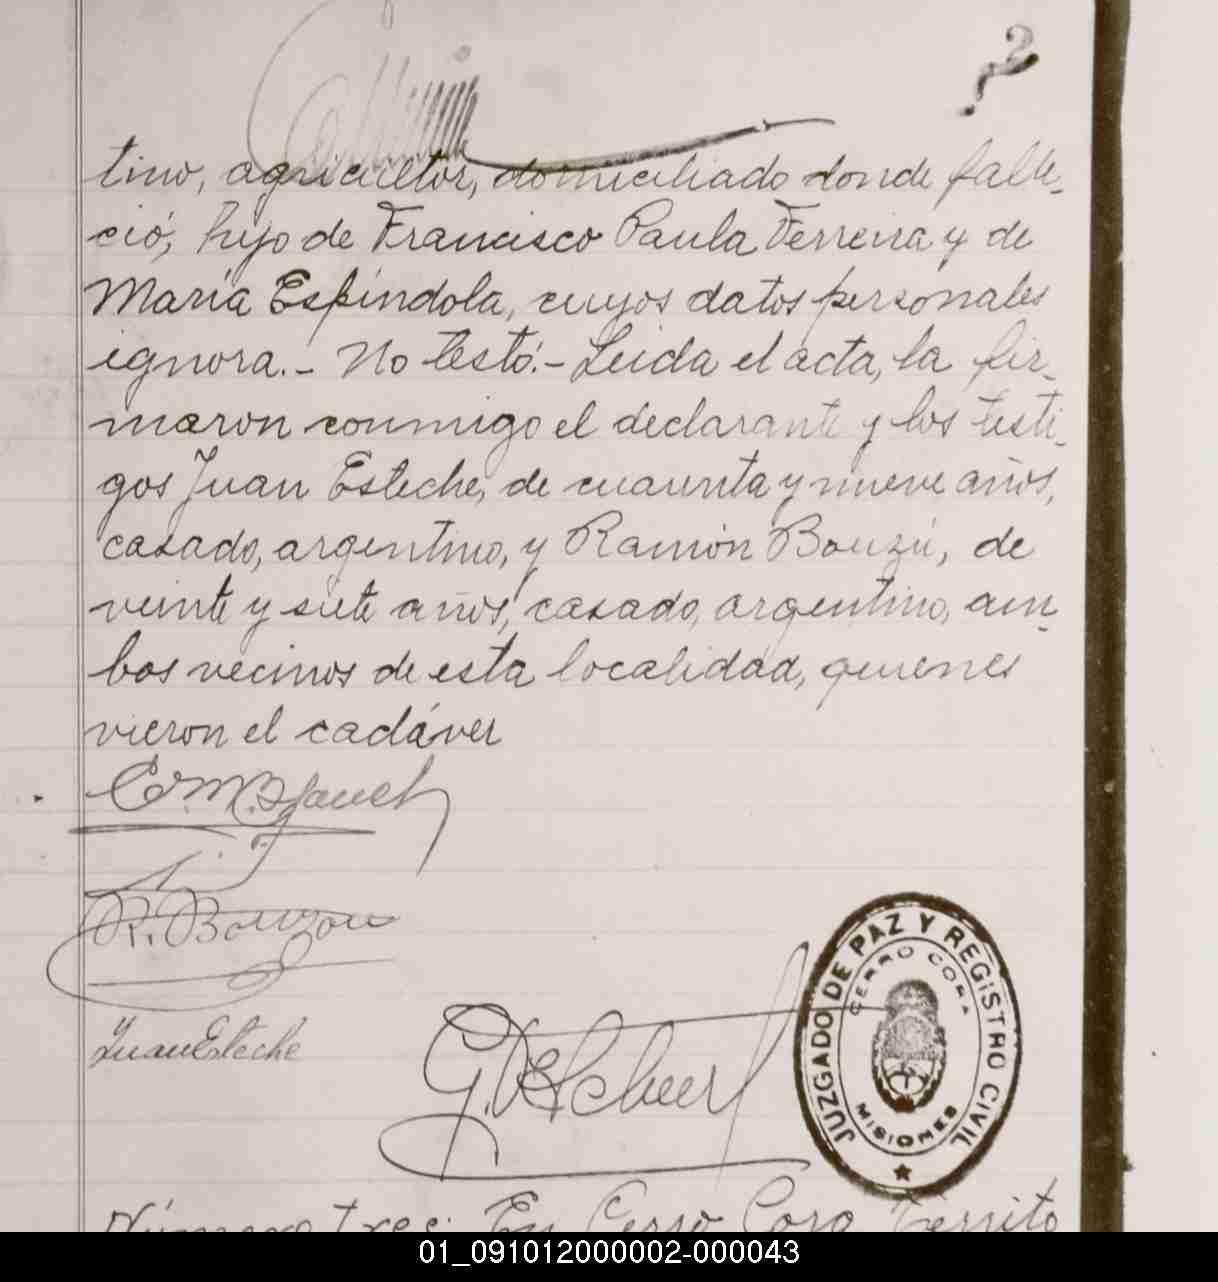 2
tino, agricultor, domiciliado donde falle-
ció, hijo de Francisco Paula Ferreira y de
María Espíndola, cuyos datos personales
ignora.- No testó.- Leida el acta, la fir-
maron conmigo el declarante y los testi-
gos Juan Esteche, de cuarenta y nueve años,
casado, argentino, y Ramón Bouzú, de
veinte y siete años, casado, argentino, am-
bos vecinos de esta localidad, quienes
vieron el cadáver
R. Bouzou
Juan Esteche
JUZGADO DE PAZ Y REGISTRO CIVIL
CERRO CORA
MISIONES
Número tres: En Cerro Cora, Territo
01_091012000002-000043